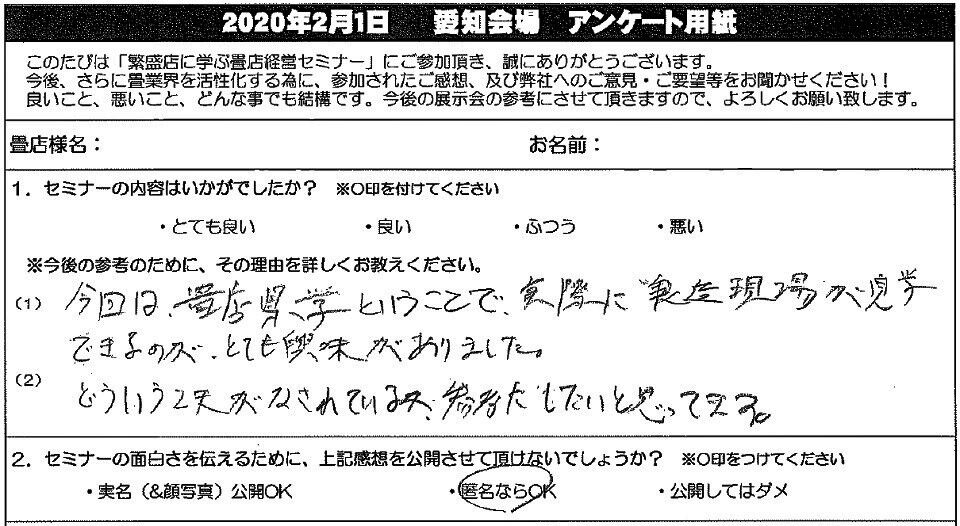 2020年2月1日 愛知会場 アンケート用紙
このたびは「繁盛店に学ぶ畳店経営セミナー」にご参加頂き、誠にありがとうございます。
今後、さらに畳業界を活性化する為に、参加されたご感想、及び弊社へのご意見・ご要望等をお聞かせください！
良いこと、悪いこと、どんな事でも結構です。今後の展示会の参考にさせて頂きますので、よろしくお願い致します。
畳店様名： お名前：
1．セミナーの内容はいかがでしたか？ ※〇印を付けてください
・とても良い ・良い ・ふつう ・悪い
※今後の参考のために、その理由を詳しくお教えください。
(1) 今回は、畳店見学ということで、実際に製造現場が見学
できるのが、とても興味がありました。
(2) どういう工夫がなされているか、参考にしたいと思ってきま
2．セミナーの面白さを伝えるために、上記感想を公開させて頂けないでしょうか？ ※〇印をつけてください
・実名（&顔写真）公開OK ・匿名ならOK ・公開してはダメ